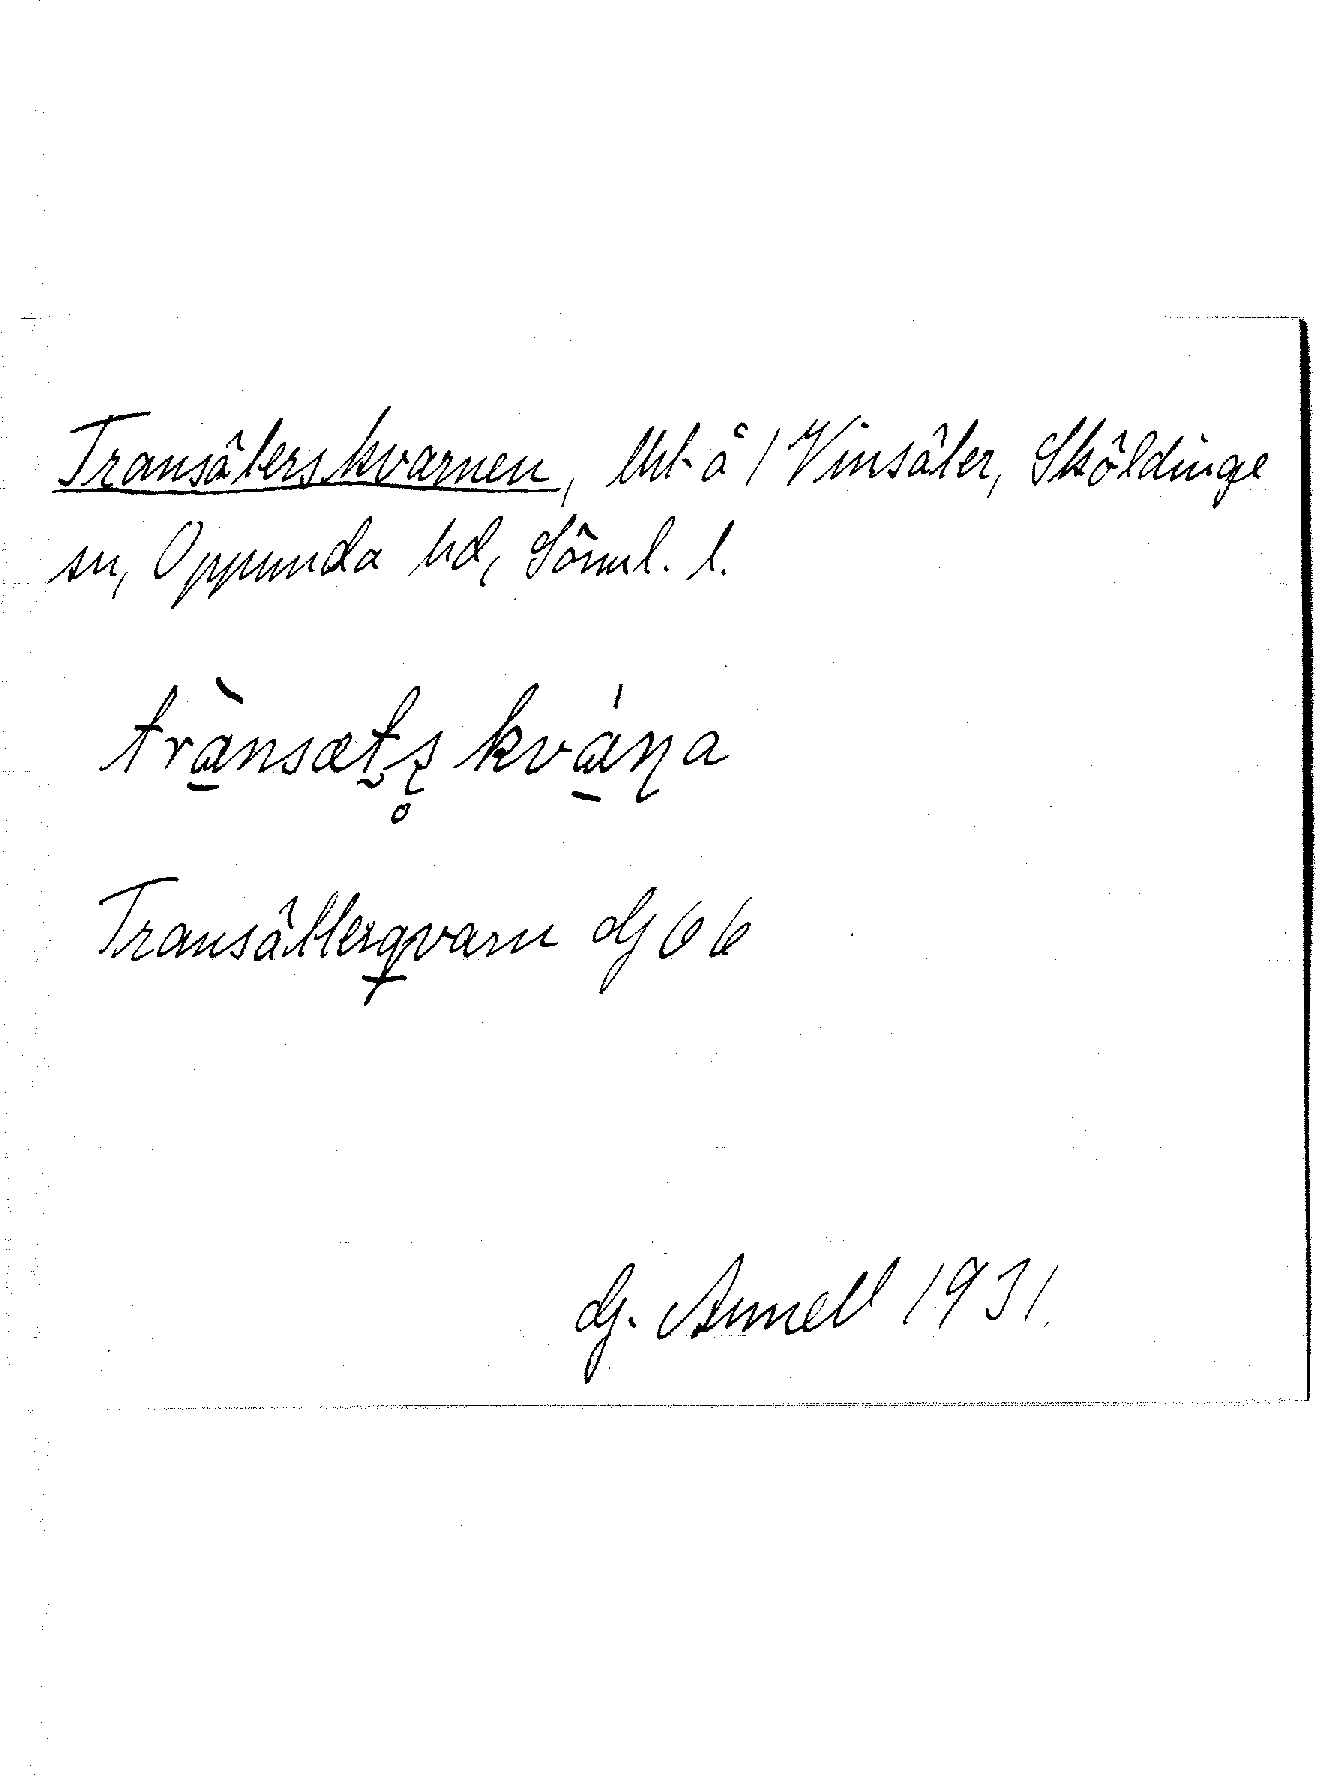 Transäterskvarnen, lht å 1 Vinsäter, Sköldinge
sn, Oppunda hd, Söml. l.
trànsæt̬s̥ kváɳa
Transätterqvarn GJ 66
G. Annell 1931.